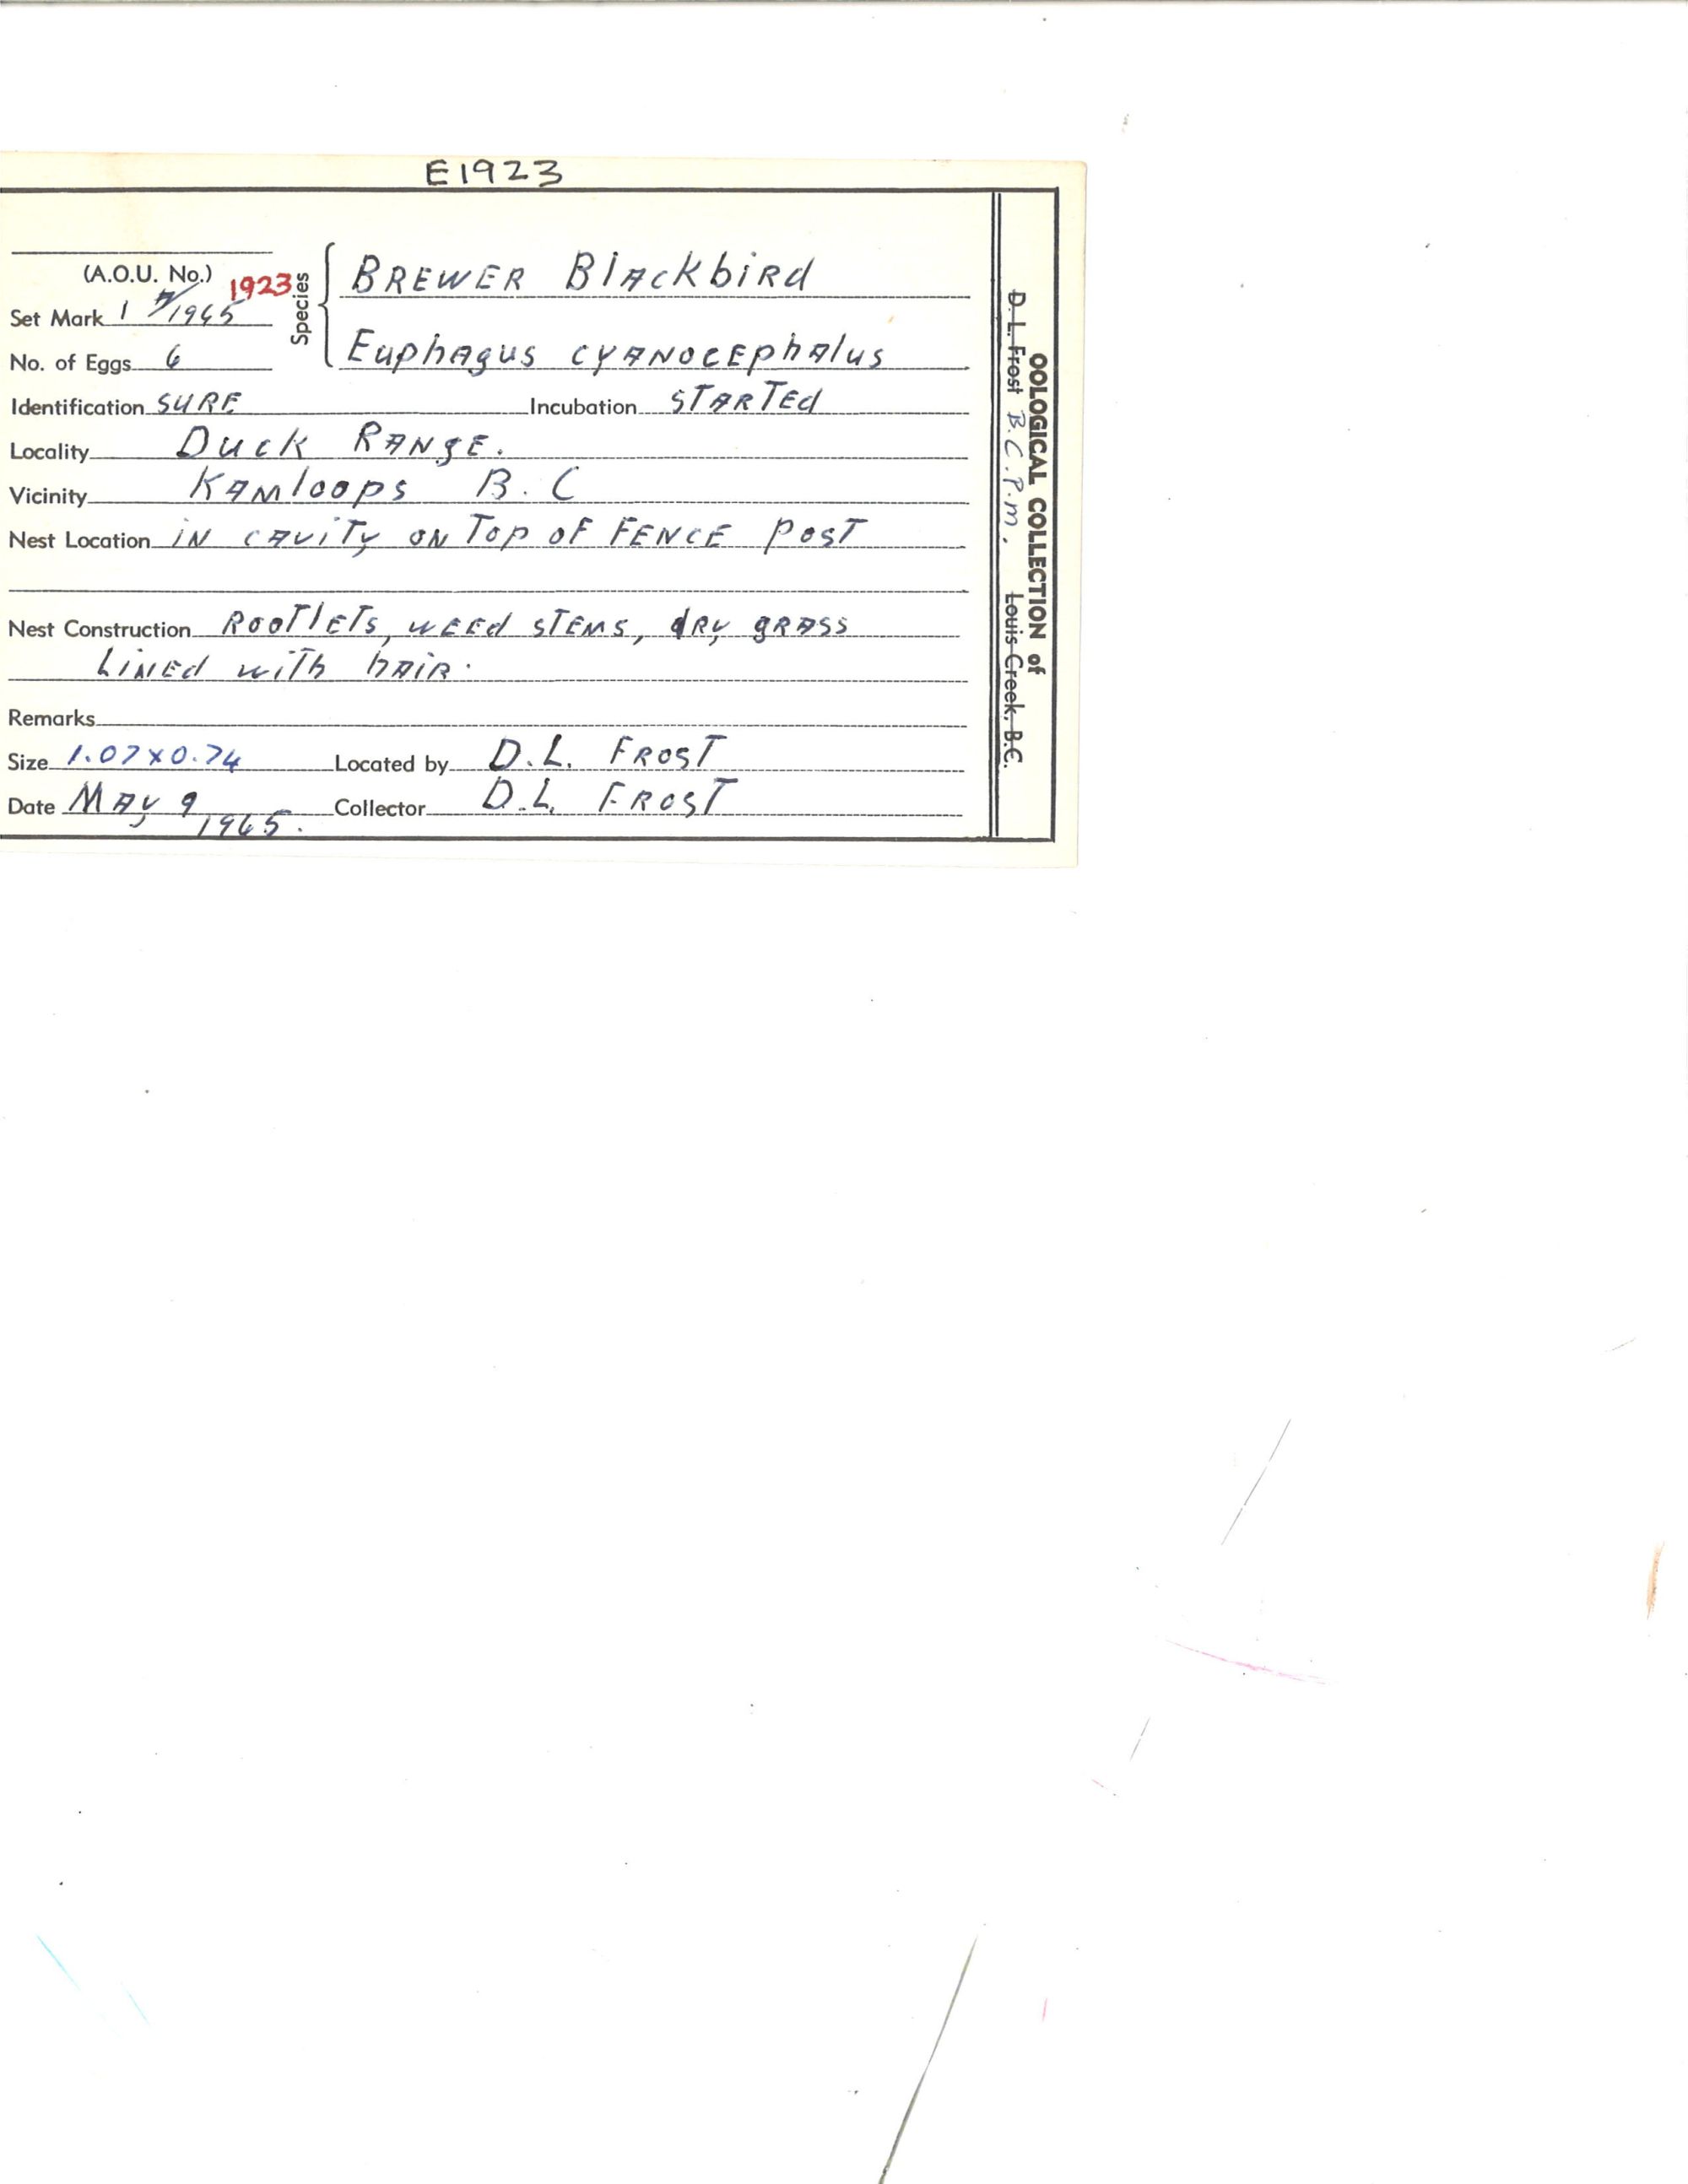 E1923
(A.O.U. No.) 1923
Species { BREWER Blackbird
Euphagus cyanocephalus
Set Mark 1 /1965
No. of Eggs 6
Identification SURE Incubation STARTEd
Locality Duck RANgE.
Vicinity KAMloops B.C
Nest Location iN cAviTy oN Top oF FENCE posT
Nest Construction RooTlETs, wEEd sTEMs, dRy gRAss
LiNEd wiTh hAiR.
Remarks
Size 1.07 x 0.74 Located by D.L. FROST
Date MAy 9 1965. Collector D.L. FROST
OOLOGICAL COLLECTION of
D. L. Frost B.C.P.M. Louis Creek, B.C.